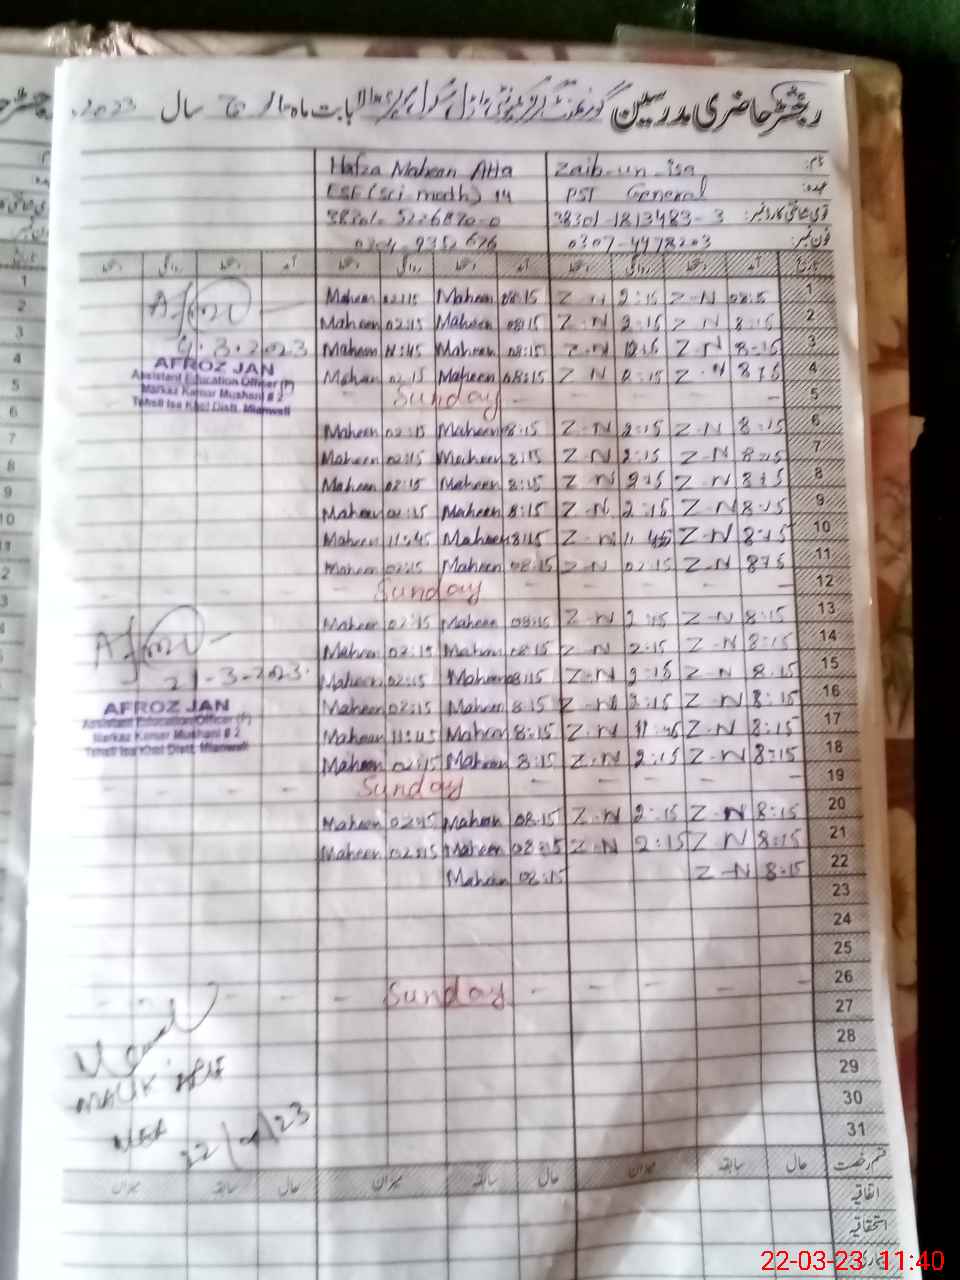 رجسٹر حاضری مدرسین گورنمنٹ سکول بابت ماہ مارچ سال 2023
نام: Zaib-un-isa Hafza Maheen Atta
عہدہ: PST General ESE (Sci-math) 14
قومی شناختی کارڈ نمبر: 38301-1813483-3 38301-5226870-0
فون نمبر: 0307-4478203
تاریخ آمد دستخط روانگی دستخط آمد دستخط روانگی دستخط آمد دستخط روانگی دستخط
1 08:15 Z-N 2:15 Z-N 08:15 Maheen 02:15 Maheen
2 8:15 Z-N 2:15 Z-N 08:15 Maheen 02:15 Maheen
3 8:15 Z-N Z-N 08:15 Maheen 11:45 Maheen
4 8:15 Z-N 2:15 Z-N 08:15 Maheen 02:15 Maheen
4.3.2023
AFROZ JAN
Assistant Education Officer (F)
Markaz Kamar Mushani # 2
Tehsil Isa Khel Distt. Mianwali
5 Sunday
6 8:15 Z-N 2:15 Z-N 8:15 Maheen 02:15 Maheen
7 8:15 Z-N 2:15 Z-N 8:15 Maheen 02:15 Maheen
8 8:15 Z-N 2:15 Z-N 8:15 Maheen 02:15 Maheen
9 8:15 Z-N 2:15 Z-N 8:15 Maheen 02:15 Maheen
10 8:15 Z-N 11:45 Z-N 8:15 Maheen 11:45 Maheen
11 8:15 Z-N 02:15 Z-N 08:15 Maheen 02:15 Maheen
12 Sunday
13 8:15 Z-N 2:15 Z-N 08:15 Maheen 02:15 Maheen
14 8:15 Z-N 2:15 Z-N 08:15 Maheen 02:15 Maheen
15 8:15 Z-N 2:15 Z-N 08:15 Maheen 02:15 Maheen
21-3-2023
16 8:15 Z-N 2:15 Z-N 8:15 Maheen 02:15 Maheen
AFROZ JAN
Assistant Education Officer (F)
Markaz Kamar Mushani # 2
Tehsil Isa Khel Distt. Mianwali
17 8:15 Z-N 11:45 Z-N 8:15 Maheen 11:45 Maheen
18 8:15 Z-N 2:15 Z-N 8:15 Maheen 02:15 Maheen
19 Sunday
20 8:15 Z-N 2:15 Z-N 08:15 Maheen 02:15 Maheen
21 8:15 Z-N 2:15 Z-N 08:15 Maheen 02:15 Maheen
22 8:15 Z-N 08:15 Maheen
23
24
25
26 Sunday
27
28
29
30
31
قسم رخصت حال سابقہ میزان حال سابقہ میزان حال سابقہ میزان
اتفاقیہ
استحقاقیہ
22-03-23 11:40